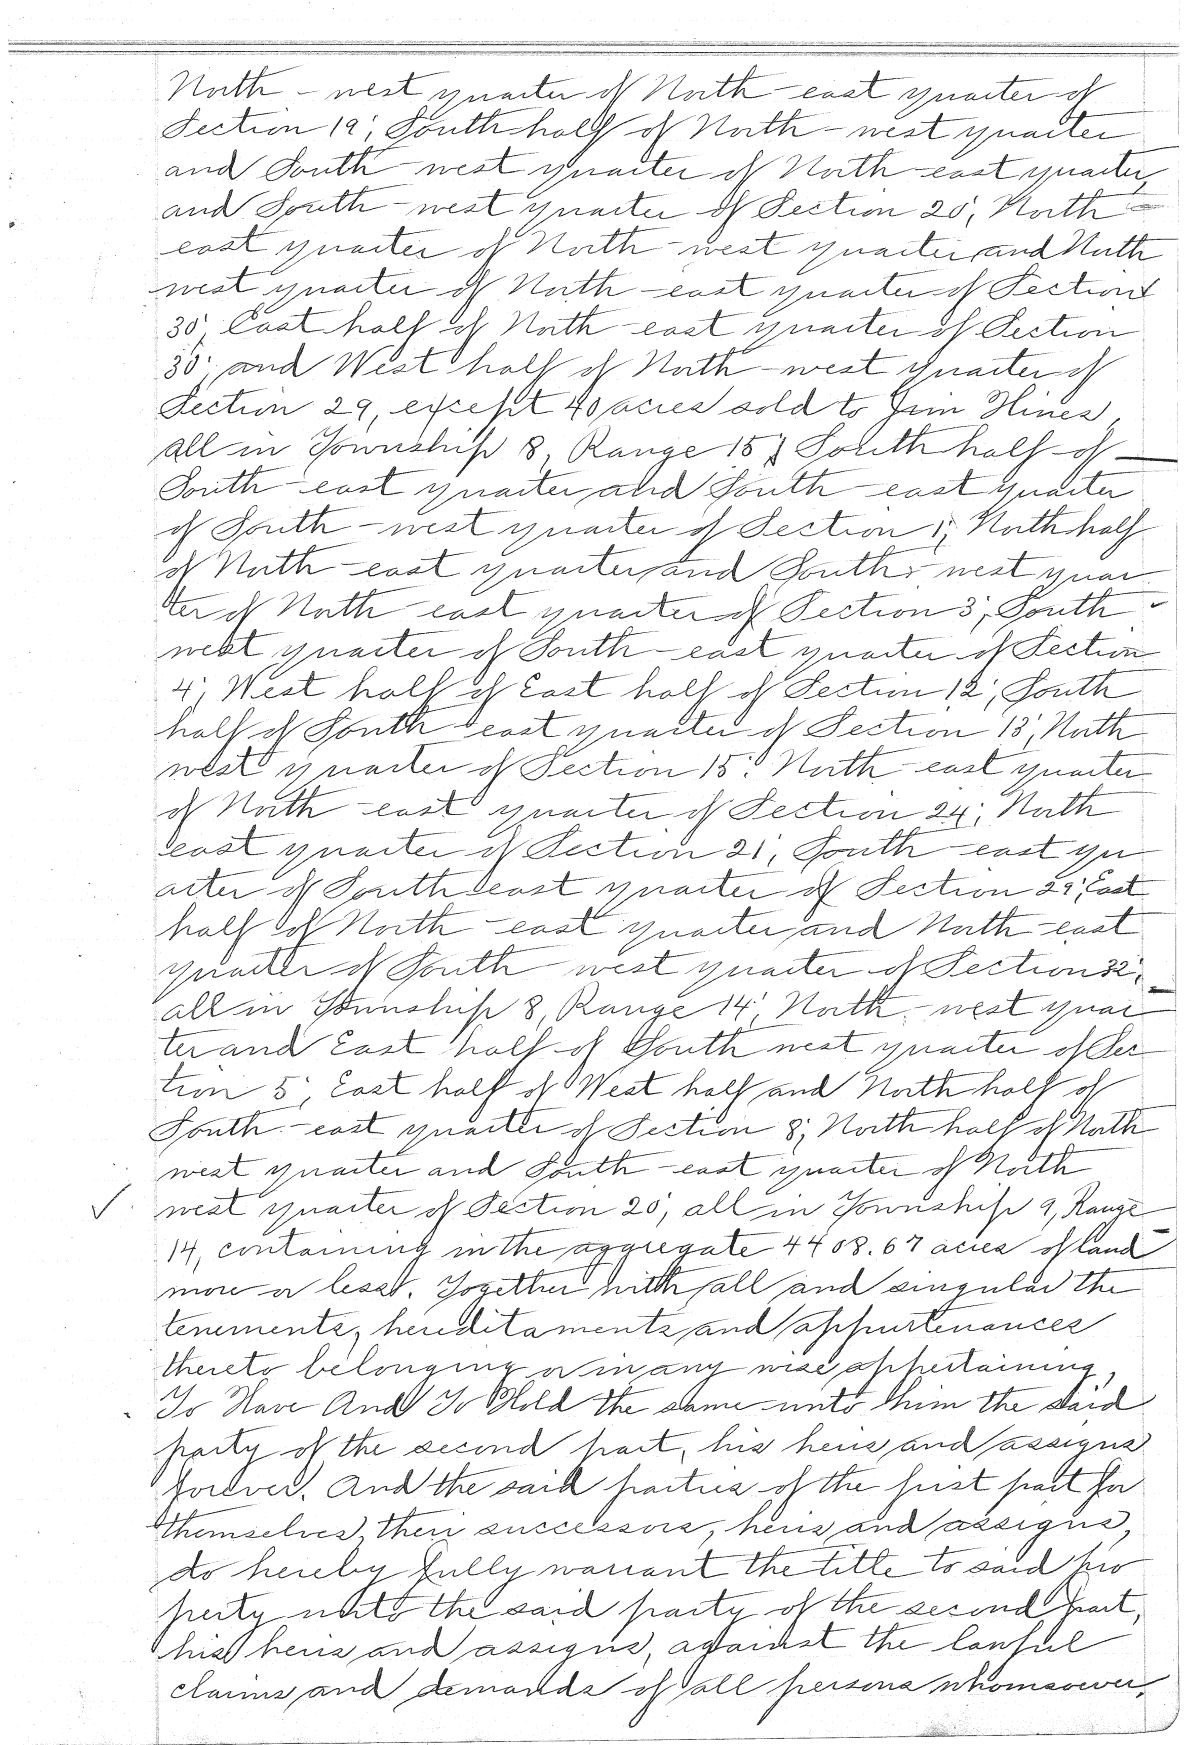 North - west quarter of North - east quarter of
Section 19; South half of North - west quarter
and South - west quarter of North - east quarter,
and South - west quarter of Section 20; North -
east quarter of North - west quarter and North
west quarter of North - east quarter of Section
30; East half of North - east quarter of Section
30; and West half of North - west quarter of
Section 29, except 40 acres sold to Jim Hines,
all in Township 8, Range 15; South half of
South - east quarter and South - east quarter
of South - west quarter of Section 1; North half
of North - east quarter and South - west quar
ter of North east quarter of Section 3; South -
west quarter of South - east quarter of Section
4; West half of East half of Section 12; South
half of South - east quarter of Section 13; North
west quarter of Section 15; North - east quarter
of North - east quarter of Section 24; North
east quarter of Section 21; South - east qu
arter of South east quarter of Section 29; East
half of North - east quarter and North - east
quarter of South west quarter of Section 32;
all in Township 8, Range 14; North - west quar
ter and East half of South west quarter of Sec
tion 5; East half of West half and North half of
South - east quarter of Section 8; North half of North
west quarter and South - east quarter of North
west quarter of Section 20; all in Township 9, Range
14, containing in the aggregate 4408.67 acres of land
more or less. Together with all and singular the
tenements, hereditaments and appurtenances
thereto belonging or in any wise appertaining,
To Have And To Hold the same unto him the said
party of the second part, his heirs and assigns
forever. And the said parties of the first part for
themselves, their successors, heirs and assigns,
do hereby fully warrant the title to said pro
perty unto the said party of the second part,
his heirs and assigns, against the lawful
claims and demands of all persons whomsoever.